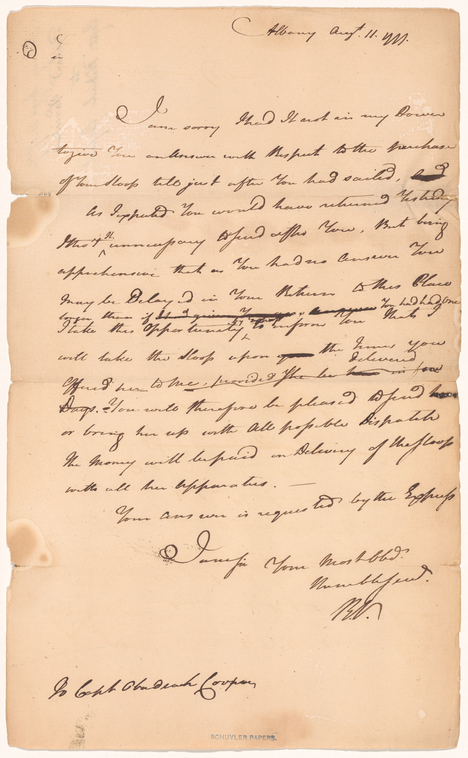 Albany Augt. 11. 1777.
I am sorry I had It not in my Power
to give You an Answer with Respect to the purchase
of Your Sloop till just after You had sailed,
As I expected You would have returned Yesterday
I tho't unnecessary to send after You, But being
apprehensive that as You had no answer You
may be Delayed in Your Return to this Place
You had had One
I take this Opportunity to inform You that I
will take the Sloop upon the Terms you
delivered
Offered her to me, provided She be in four
Days. - You will therefore be pleased to send
or bring her up with All possible Dispatch
the Money will be paid on Delivery of the Sloop
with all her Apparatus. -
Your answer is requested by the Express
I am Sir Your Most Obd.
Humble Servt.
To Capt Obadiah Cooper
SCHUYLER PAPERS.